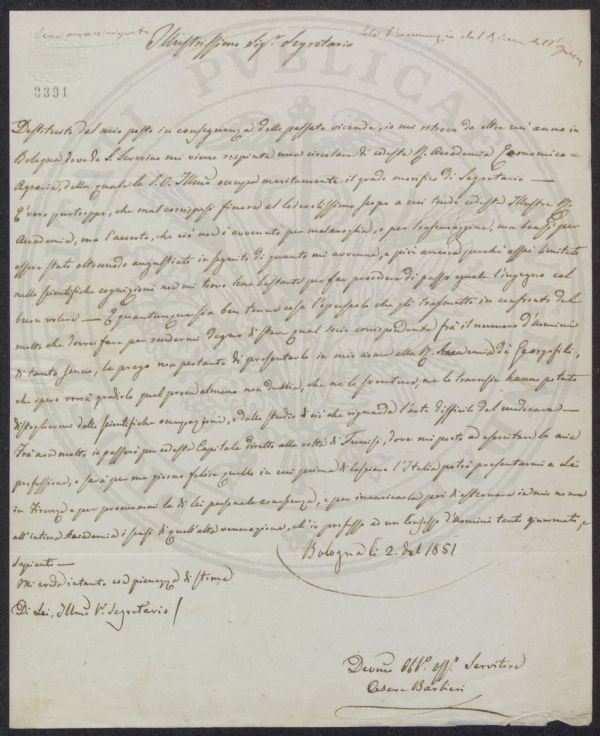 Illustrissimo Sigr. Segretario
2391
Destituito dal mio posto in conseguenza delle passate vicende, io mi ritrovo da oltre un'anno in
Bologna, dove da S. Severino mi viene respinta una circolare di codesta I. Accademia Economico=
Agraria, della quale la S. V. Illma occupa meritamente il grado onorifico di Segretario —
È vero purtroppo, che mal corrisposi finora al lodevolissimo scopo a cui tende codesta Illustre
Accademia, ma l'accerto, che ciò non è avvenuto per malavoglia, o per trascuraggine, ma bensì per
essere stato oltremodo angustiato in seguito di quanto mi avvenne, e più ancora perchè assai limitato
nelle scientifiche cognizioni non mi trovo lena bastante per far procedere di passo eguale l'ingegno col
buon volere — E quantunque sia ben tenue cosa l'opuscolo che gli trasmetto in confronto del
molto che dovrei fare per rendermi degno di stare qual socio corrispondente frà il numero d'Uomini
di tanto senno, la prego non pertanto di presentarlo in mio nome alla Accademia dè Georgofili,
che spero vorrà gradirlo qual prova almeno non dubbia, che nè le sventure, nè le traversie hanno potuto
distogliermi dalle scientifiche occupazioni, e dallo studio di ciò che riguarda l'arte difficile del medicare —
Frà non molto, io passerò per codesta Capitale diretto alla volta di Tunisi, dove mi porto ad esercitare la mia
professione, e sarà per me giorno felice quello in cui prima di lasciare l'Italia potrò presentarmi a Lei
in Firenze per procurarmi la di lei personale conoscenza, e per incaricarla poi di esternare in mio nome
all'intiera Accademia i sensi di quell'alta venerazione, ch'io professo ad un Consesso d'Uomini tanto rinomati, e
sapienti —
Bologna li 2. del 1851
Mi creda intanto con pienezza di stima
Di Lei, Illmo Sr. Segretario
Devmo Obbo. Servitore
Cesare Barbieri